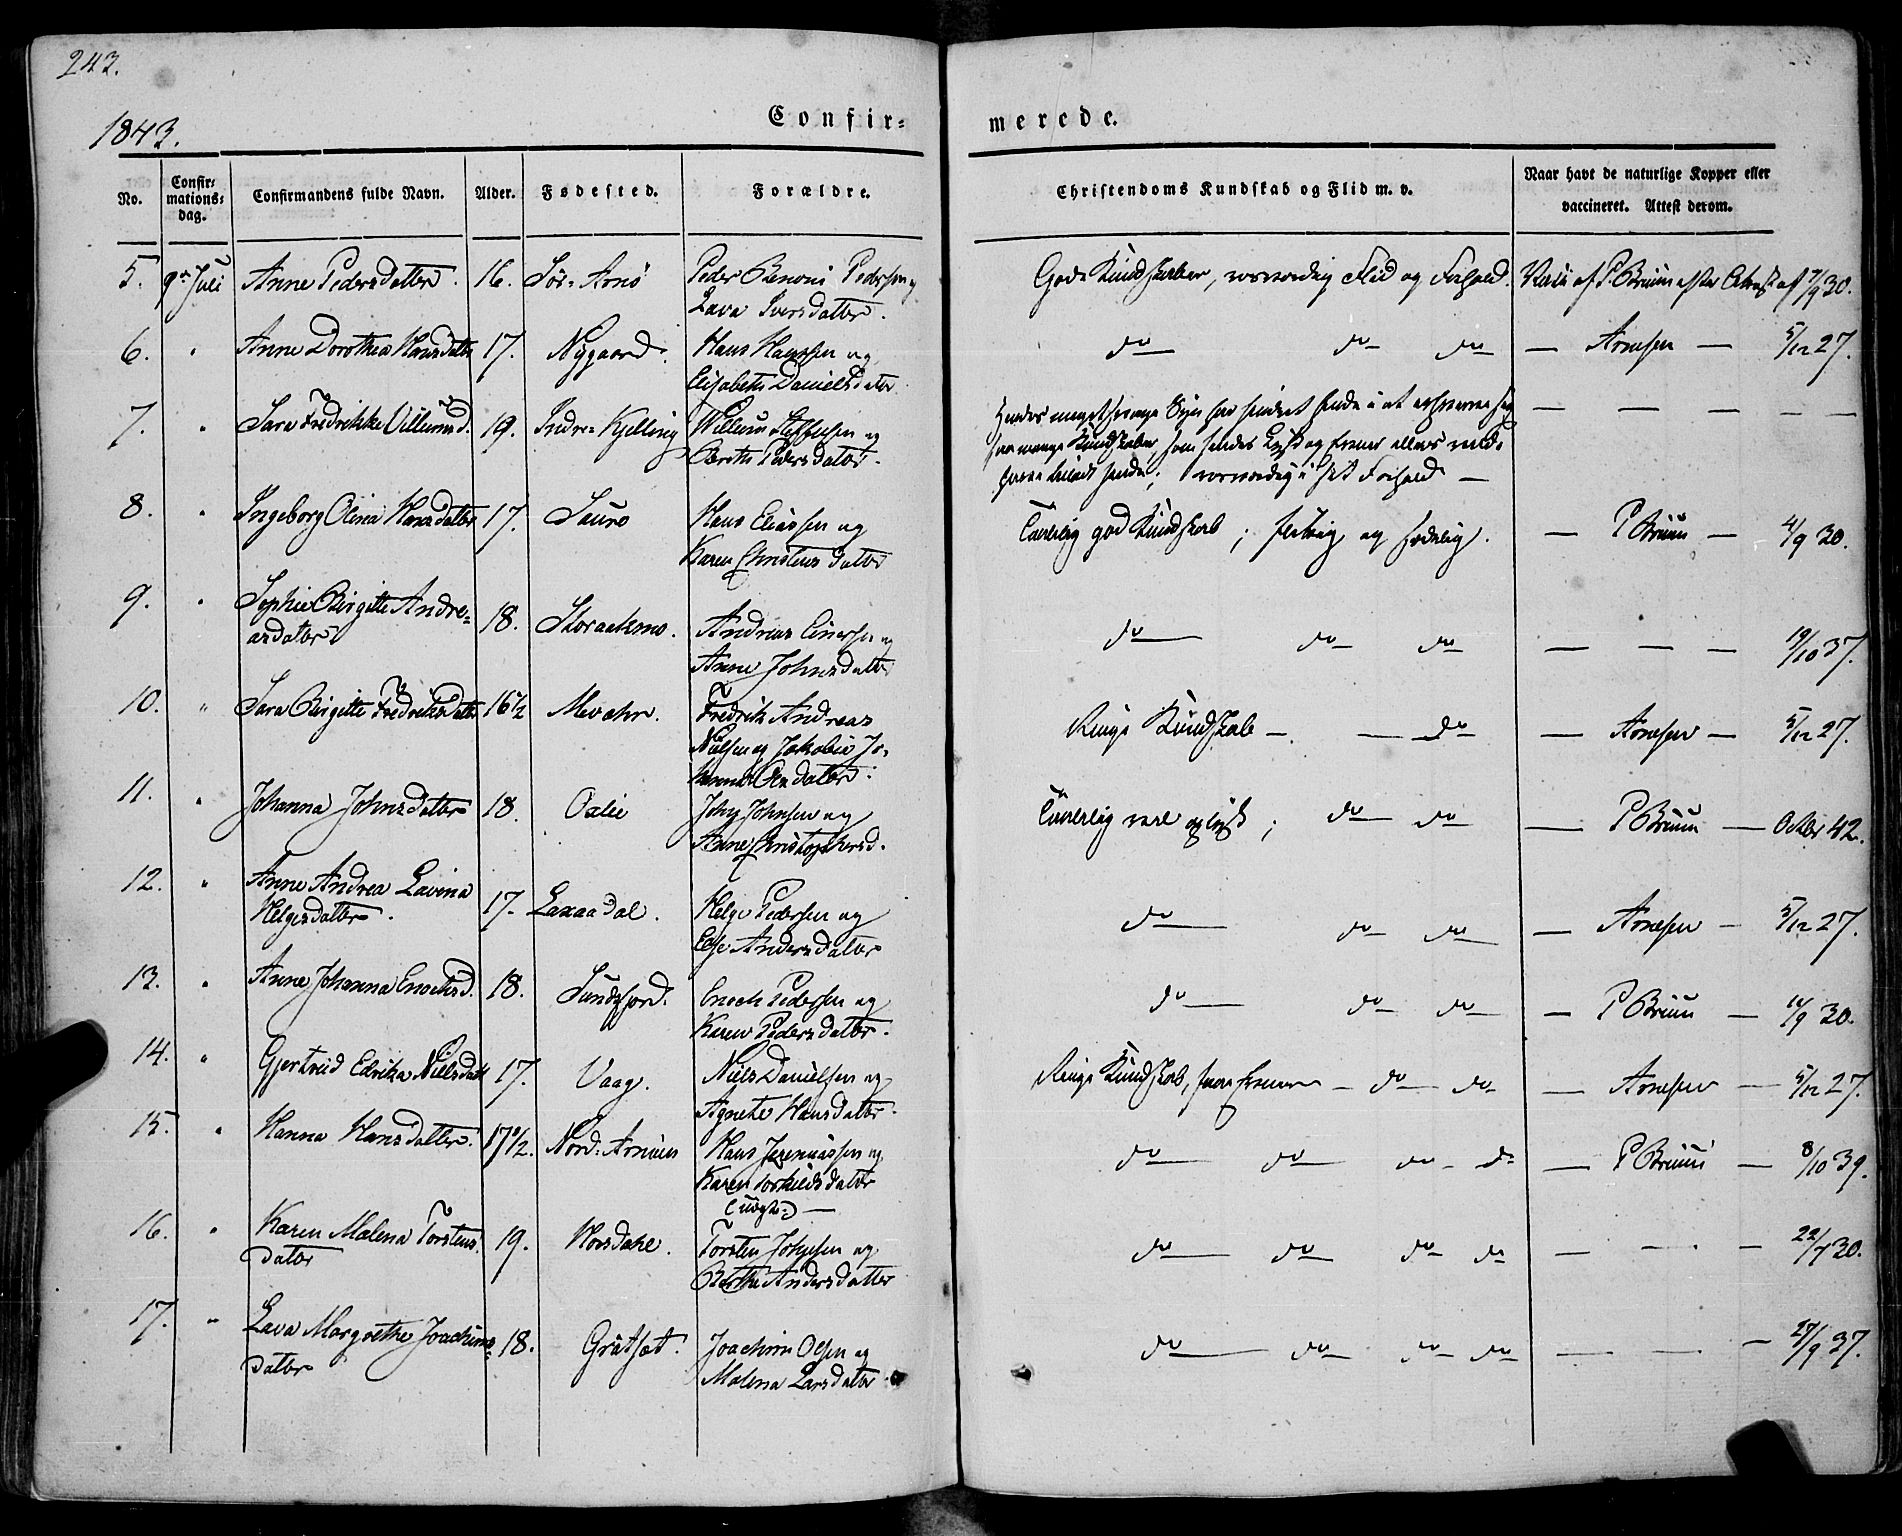 243.
1843.
Confir-
merede.
No.
Confir-
mations-
dag.
Confirmandens fulde Navn.
Alder.
Fødested.
Forældre.
Christendoms Kundskab og Flid m. v.
Naar havt de naturlige Kopper eller
vaccineret. Attest derom.
5. 9de Juli Anne Pedersdatter. 16. Sör-Arnö Peder Benoni Pedersen og
Lava Iversdatter.
Gode Kundskaber, roesværdig Flid og Forhold. Vacc. af P. Bruun efter Attest af 7/9 30.
6. " Anne Dorothea Hansdatter 17. Nygaard. Hans Hanssen og
Elisabeth Danielsdatter
do do do — Arnesen — 5/12 27.
7. " Sara Fredrikke Villumsd. 19. Indre-Kjelling Willum Steffensen og
Berthe Pedersdatter.
Hendes meget svage Syn har hindret hende i at erhverve sig
saa mange Kundskaber, som hendes Lyst og Evner ellers vilde
have bragt hende; roesværdig i sit Forhold —
8. " Ingeborg Olina Hansdatter 17. Saura Hans Eliassen og
Karen Christensdatter
Taalelig god Kundskab; flittig og sædelig. — P Bruun — 4/9 30.
9. " Sophie Birgitte Andre-
asdatter 18. Storaakrmo. Andreas Einersen og
Anne Johnsdatter
do do do — — — 19/10 37.
10. " Sara Birgitte Fredriksdatter 16 1/2 Mevehr. Fredrik Andreas
Nielsen og Jakobia Jo-
hanna Olsdatter.
Ringe Kundskab — — do — Arnesen — 5/12 27.
11. " Johanna Johnsdatter 18. Oxlie John Johnsen og
Anne Christophersd.
Taalelig vel oplyst; do do — P Bruun — Octbr 42.
12. " Anne Andrea Lavina
Helgesdatter. 17. Laxaadal. Helge Pedersen og
Else Andersdatter
do do do — Arnesen — 5/12 27.
13. " Anne Johanna Enochsd. 18. Sundsfjord. Enoch Pedersen og
Karen Pedersdatter.
do do do — P Bruun — 14/9 30.
14. " Gjertrud Edvika Nielsdatt 17. Vaag. Niels Danielsen og
Agnete Hansdatter.
Ringe Kundskab, svage Evner — do do — Arnesen — 5/12 27.
15. " Hanna Hansdatter. 17 1/2. Nord-Arnöen Hans Jeremiassen og
Karen Torkildsdatter
(uægte) —
do do do do — P Bruun — 8/10 39.
16. " Karen Malena Torstens
datter 19. Horsdahl. Torsten Johnsen og
Berthe Andersdatter
do do do do — — — 22/7 30.
17. " Lava Margrethe Joachims-
datter 18. Gråtsæt. Joachim Olsen og
Malena Larsdatter.
do do do do — — — 27/9 37.